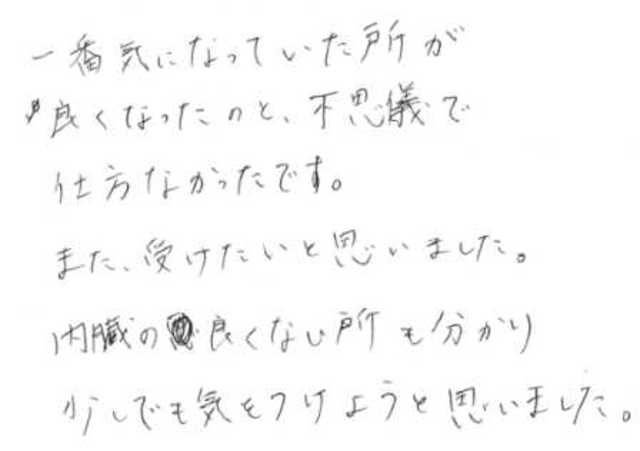 一番気になっていた所が
良くなったのと、不思儀で
仕方なかったです。
また、受けたいと思いました。
内臓の良くない所も分かり
少しでも気をつけようと思いました。